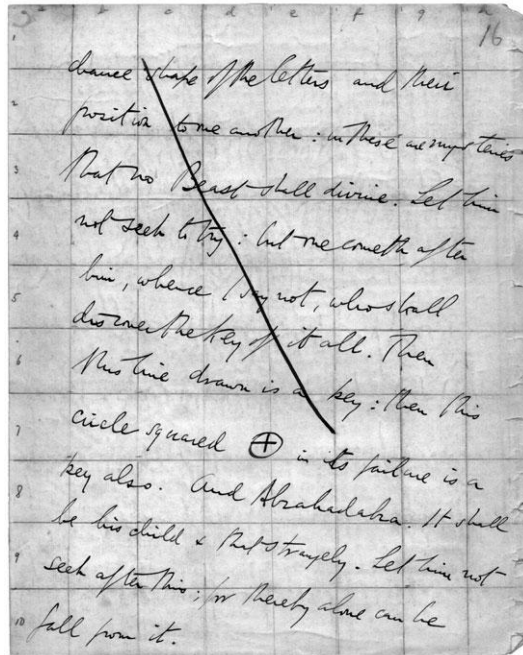 a b c d e f g h
16
chance shape of the letters and their
position to one another: in these are mysteries
that no Beast shall divine. Let him
not seek to try: but one cometh after
him, whence I say not, who shall
discover the Key of it all. Then
this line drawn is a key: then this
circle squared ⊕ in its failure is a
key also. And Abrahadabra. It shall
be his child & that strangely. Let him not
seek after this; for thereby alone can he
fall from it.
1
2
3
4
5
6
7
8
9
10